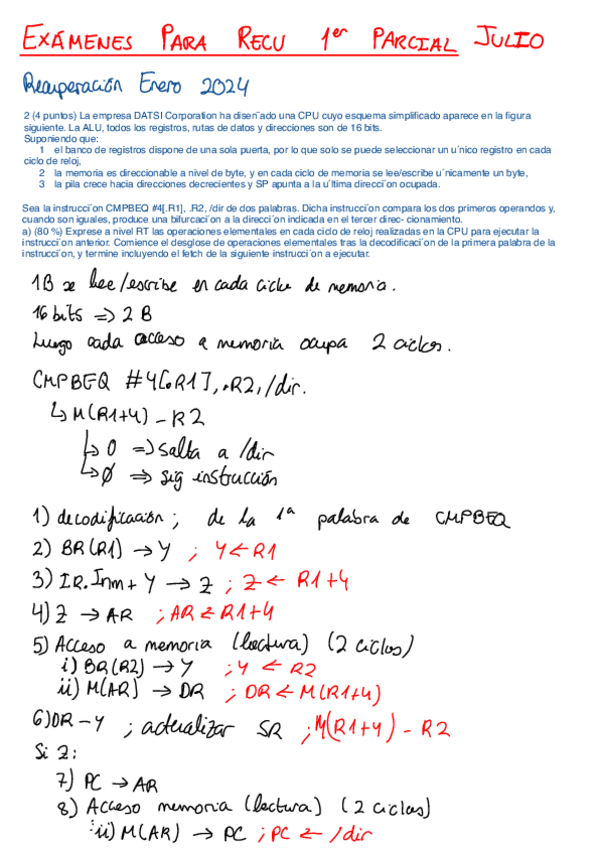 EXÁMENES PARA RECU 1er PARCIAL JULIO
Recuperación Enero 2024
2 (4 puntos) La empresa DATSI Corporation ha disen˜ado una CPU cuyo esquema simplificado aparece en la figura
siguiente. La ALU, todos los registros, rutas de datos y direcciones son de 16 bits.
Suponiendo que:
1 el banco de registros dispone de una sola puerta, por lo que solo se puede seleccionar un u´nico registro en cada
ciclo de reloj,
2 la memoria es direccionable a nivel de byte, y en cada ciclo de memoria se lee/escribe u´nicamente un byte,
3 la pila crece hacia direcciones decrecientes y SP apunta a la u´ltima direcci´on ocupada.
Sea la instrucci´on CMPBEQ #4[.R1], .R2, /dir de dos palabras. Dicha instrucci´on compara los dos primeros operandos y,
cuando son iguales, produce una bifurcaci´on a la direcci´on indicada en el tercer direc- cionamiento.
a) (80 %) Exprese a nivel RT las operaciones elementales en cada ciclo de reloj realizadas en la CPU para ejecutar la
instrucci´on anterior. Comience el desglose de operaciones elementales tras la decodificaci´on de la primera palabra de la
instrucci´on, y termine incluyendo el fetch de la siguiente instrucci´on a ejecutar.
1B se lee/escribe en cada ciclo de memoria.
16 bits => 2 B
Luego cada acceso a memoria ocupa 2 ciclos.
CMPBEQ #4[.R1], .R2, /dir.
↳ M(R1+4) - R2
↳ 0 => salta a /dir
↳ Ø => sig instrucción
1) decodificación ; de la 1ª palabra de CMPBEQ
2) BR(R1) → Y ; Y ← R1
3) IR.Inm + Y → Z ; Z ← R1+4
4) Z → AR ; AR ← R1+4
5) Acceso a memoria (lectura) (2 ciclos)
i) BR(R2) → Y ; Y ← R2
ii) M(AR) → DR ; DR ← M(R1+4)
6) DR - Y ; actualizar SR ; M(R1+4) - R2
Si Z:
7) PC → AR
8) Acceso memoria (lectura) (2 ciclos)
ii) M(AR) → PC ; PC ← /dir